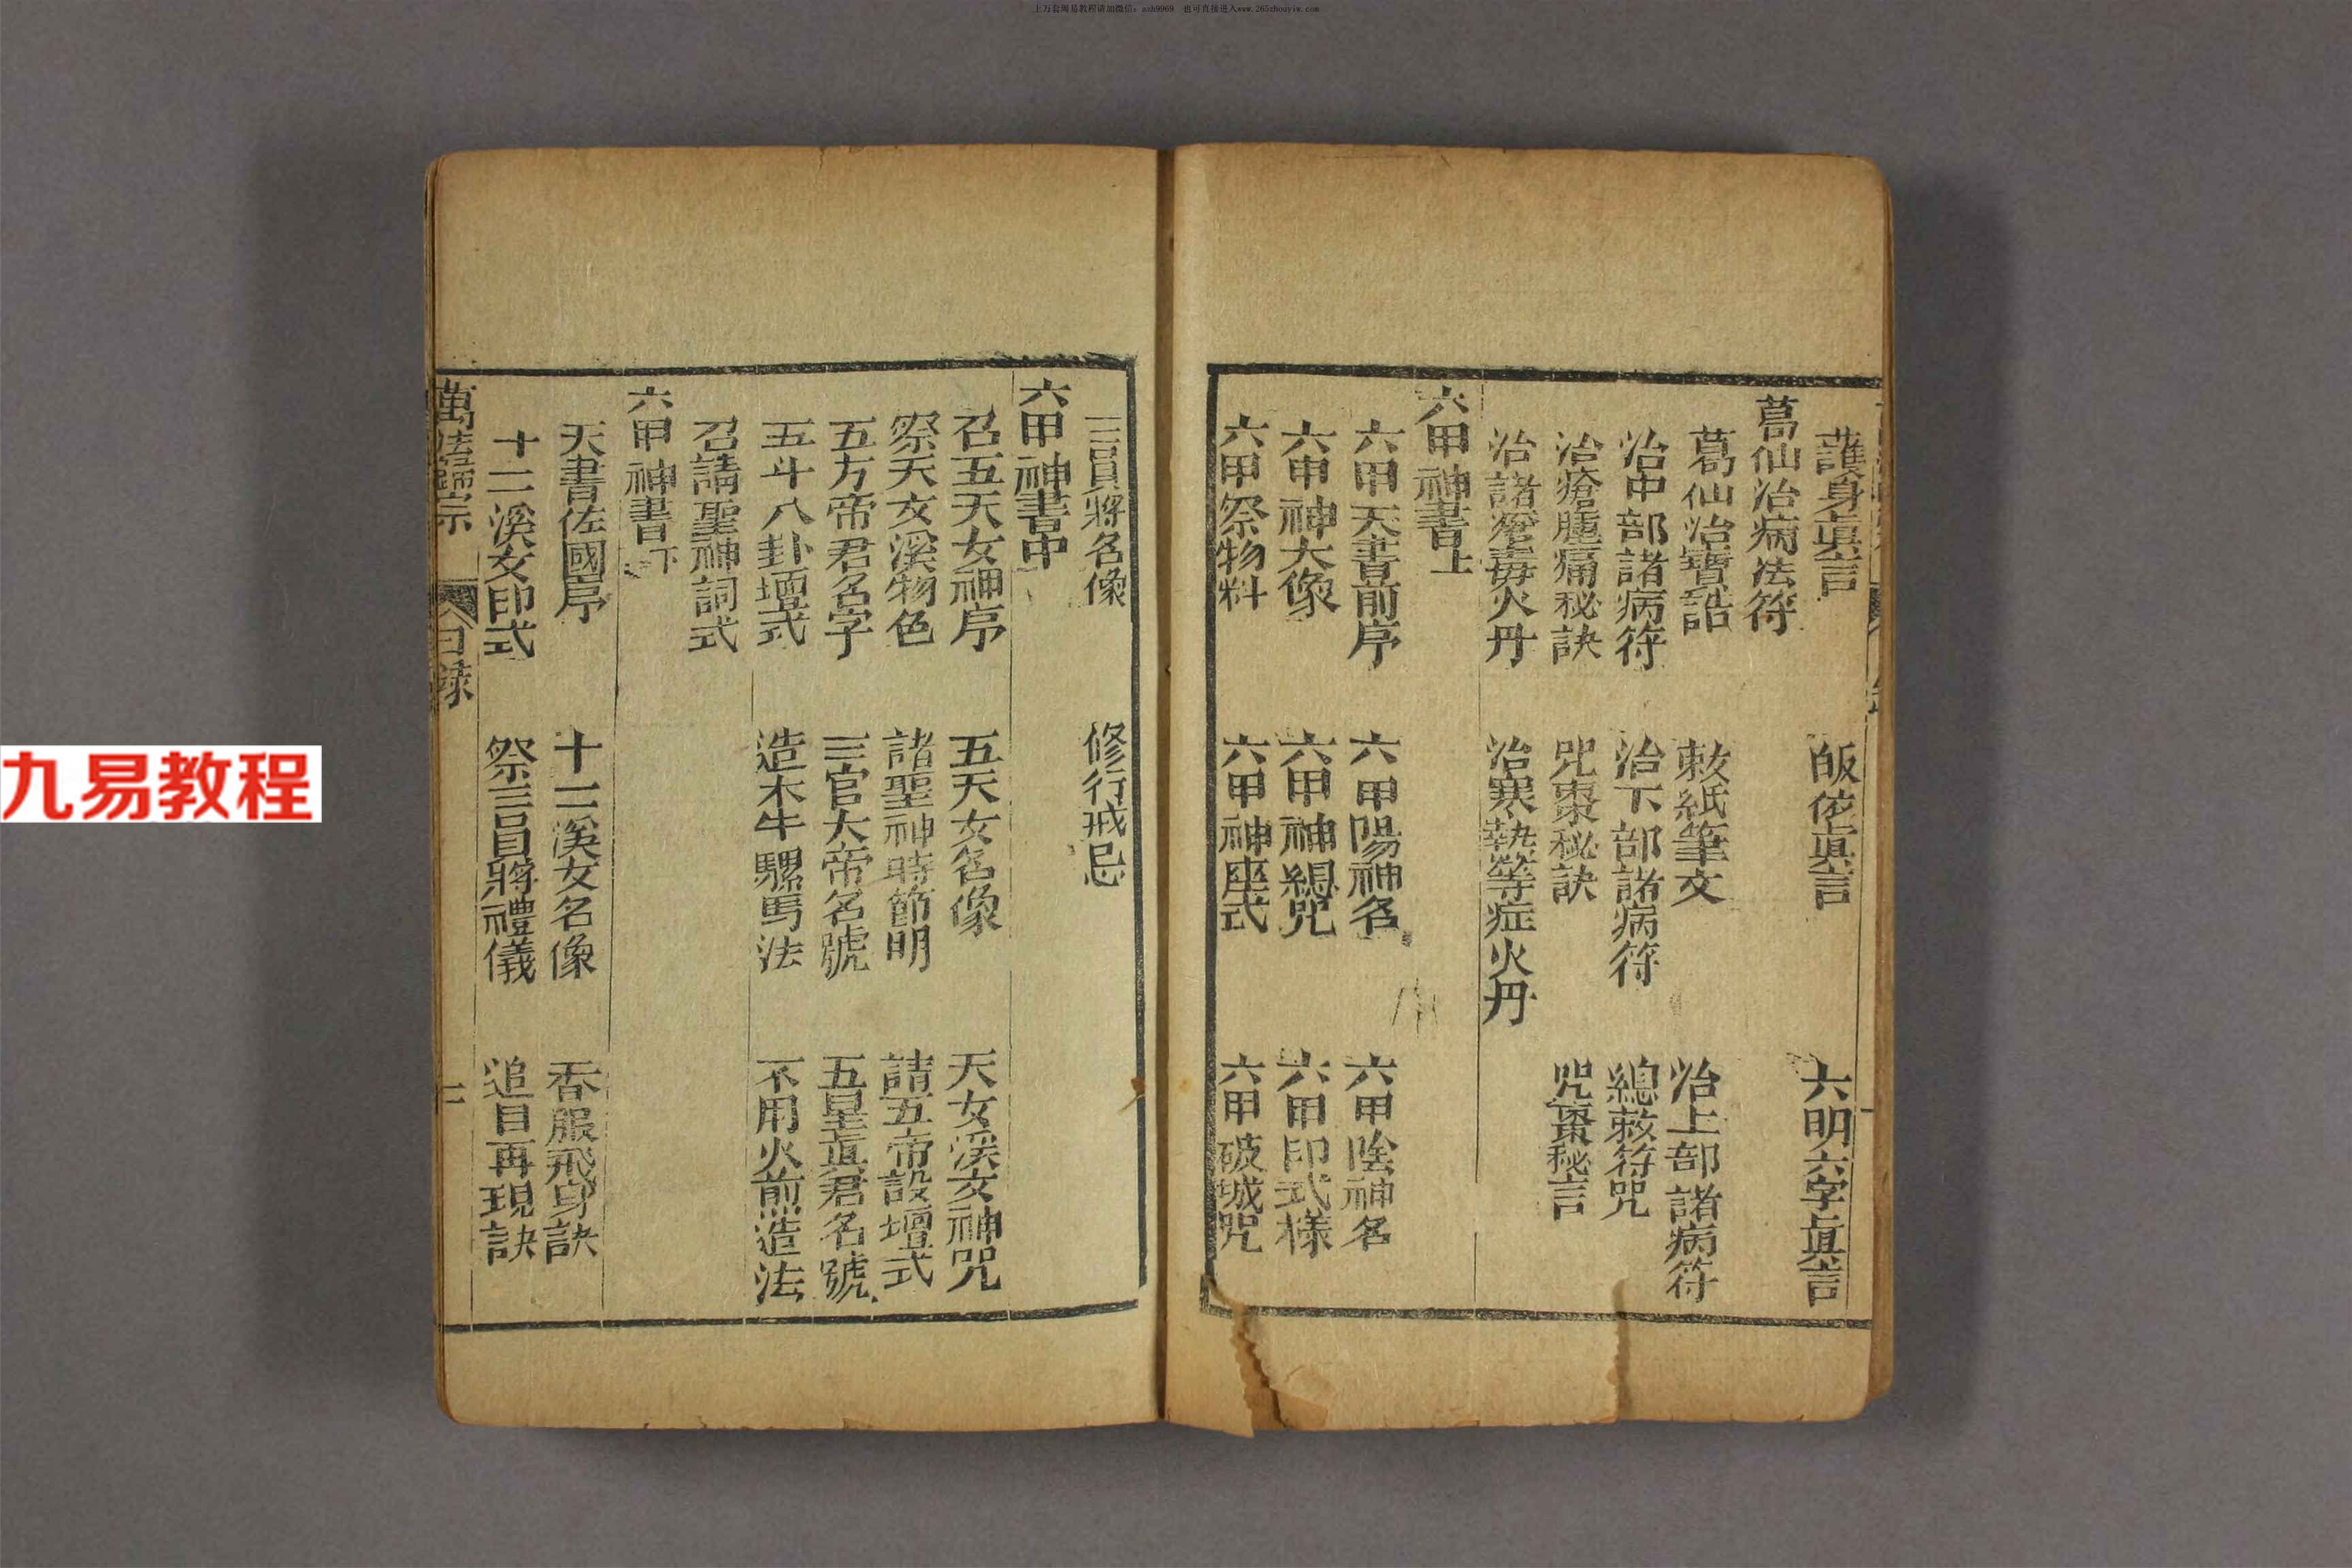 上万套周易教程请加微信：azh9969　也可直接进入www.265zhouyiw.com
九易教程
護身眞言　皈依眞言　六明六字眞言
葛仙治病法符
葛仙治寶誥　敕紙筆文　治上部諸病符
治中部諸病符　治下部諸病符　總敕符咒
治瘡腫痛秘訣　咒棗秘訣　咒棗秘言
治諸瘡毒火丹　治寒熱等症火丹
六甲神書上
六甲天書前序　六甲陽神名　六甲陰神名
六甲神大像　六甲神總咒　六甲印式樣
六甲祭物料　六甲神座式　六甲破城咒
三員將名像　修行戒忌
六甲神書中
召五天女神序　五天女名像　天女溪女神咒
祭天女溪物色　諸聖神時節明　請五帝設壇式
五方帝君名字　三官大帝名號　五星眞君名號
五斗八卦壇式　造木牛騾馬法　不用火煎造法
召請聖神詞式
六甲神書下
天書佐國序　十二溪女名像　香服飛身訣
十二溪女印式　祭三員將禮儀　追目再現訣
萬法歸宗　目錄　二